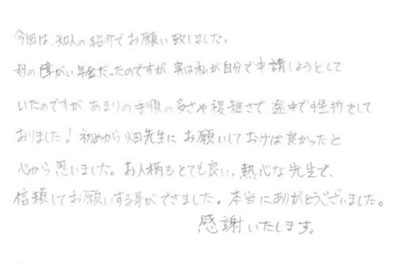 今回は、知人の紹介でお願い致しました。
母の障がい年金だったのですが、実は私が自分で申請しようとして
いたのですが、あまりの手順の多さや複雑さで、途中で挫折をして
おりました！初めから畑先生にお願いしておけば良かったと
心から思いました。お人柄もとても良い、熱心な先生で、
信頼してお願いする事ができました。本当にありがとうございました。
感謝いたします。